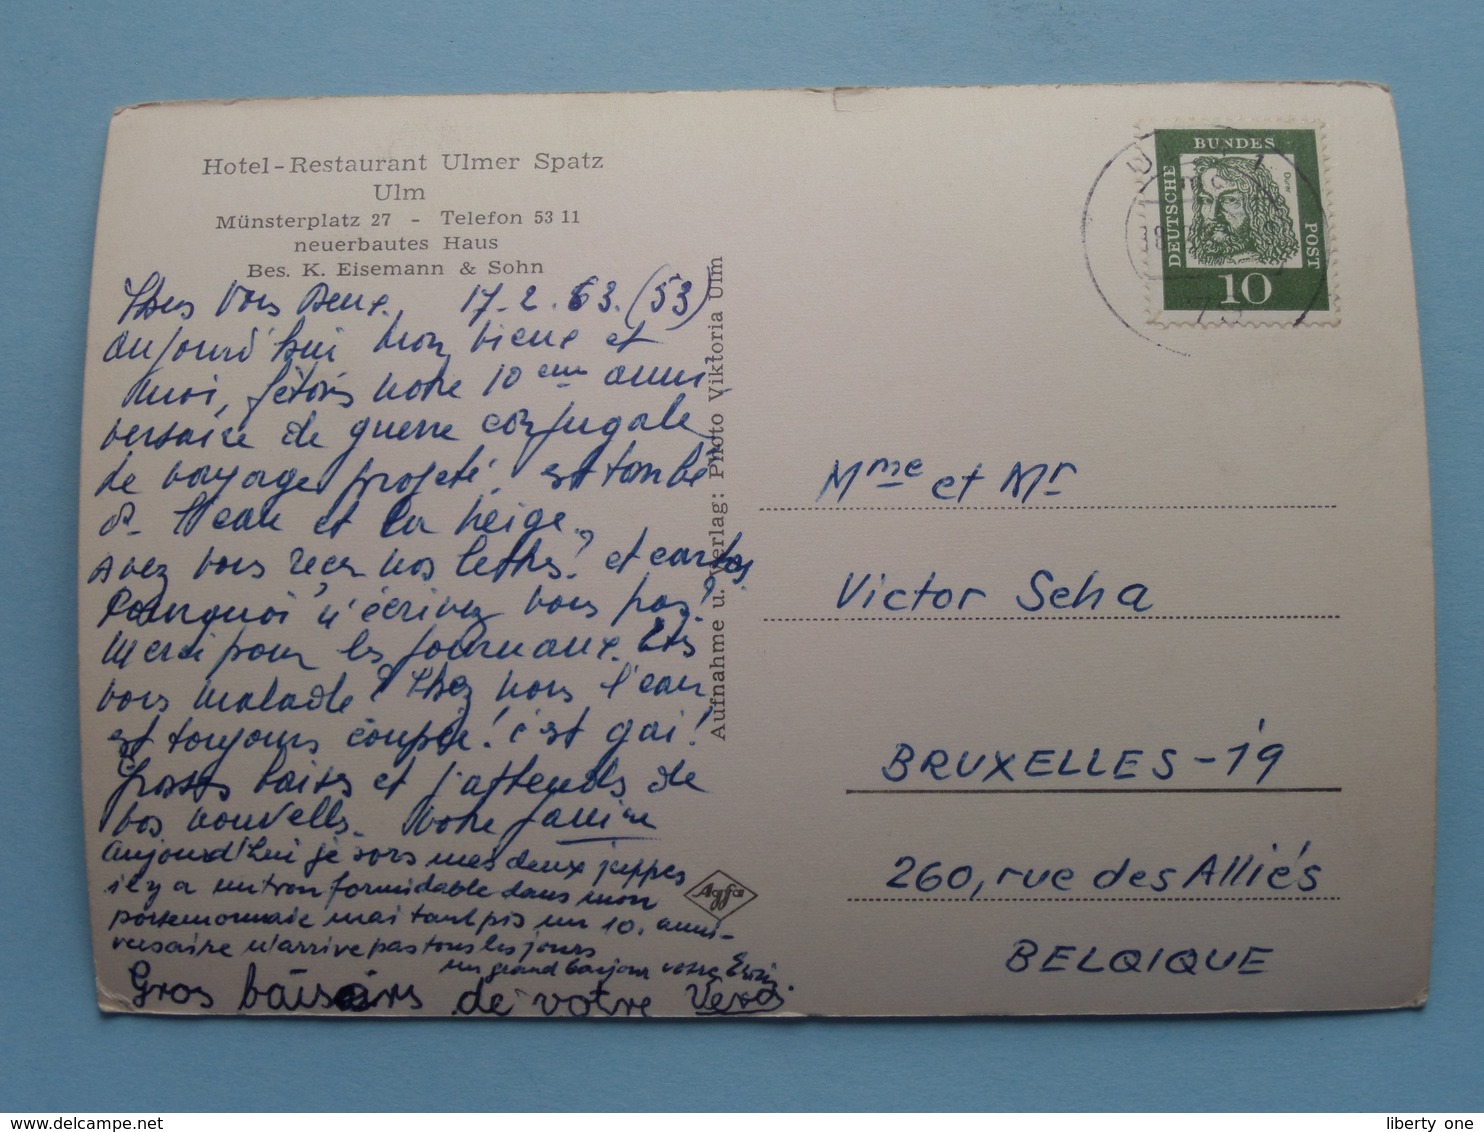 Hotel-Restaurant Ulmer Spatz
Ulm
Münsterplatz 27 - Telefon 53 11
neuerbautes Haus
Bes. K. Eisemann & Sohn
Vous Deux. 17-2.63.(53)
aujourd'hui mon vieux et
moi, fêtons notre 10 eme anni
versaire de guerre conjugale
de voyage projeté est tombé
à l'eau et la neige.
Avez vous reçu nos lettres? et cartes
Pourquoi n'écrivez vous pas?
Merci pour les journaux. Etes
vous malade? Chez nous l'eau
est toujours coupée! c'est gai!
Grosses baises et j'attends de
vos nouvelles. Votre Janine
Aujourd'hui je sors mes deux juppes
il y a un tron formidable dans mon
portemonnaie mai tant pis un 10. anni-
versaire n'arrive pas tous les jours
un grand bonjour votre
Gros de votre
Aufnahme u. Verlag: Photo Viktoria Ulm
Agfa
DEUTSCHE BUNDES POST
Dürer
10
Mme et Mr
Victor Seha
BRUXELLES-19
260, rue des Alliés
BELQIQUE
liberty one